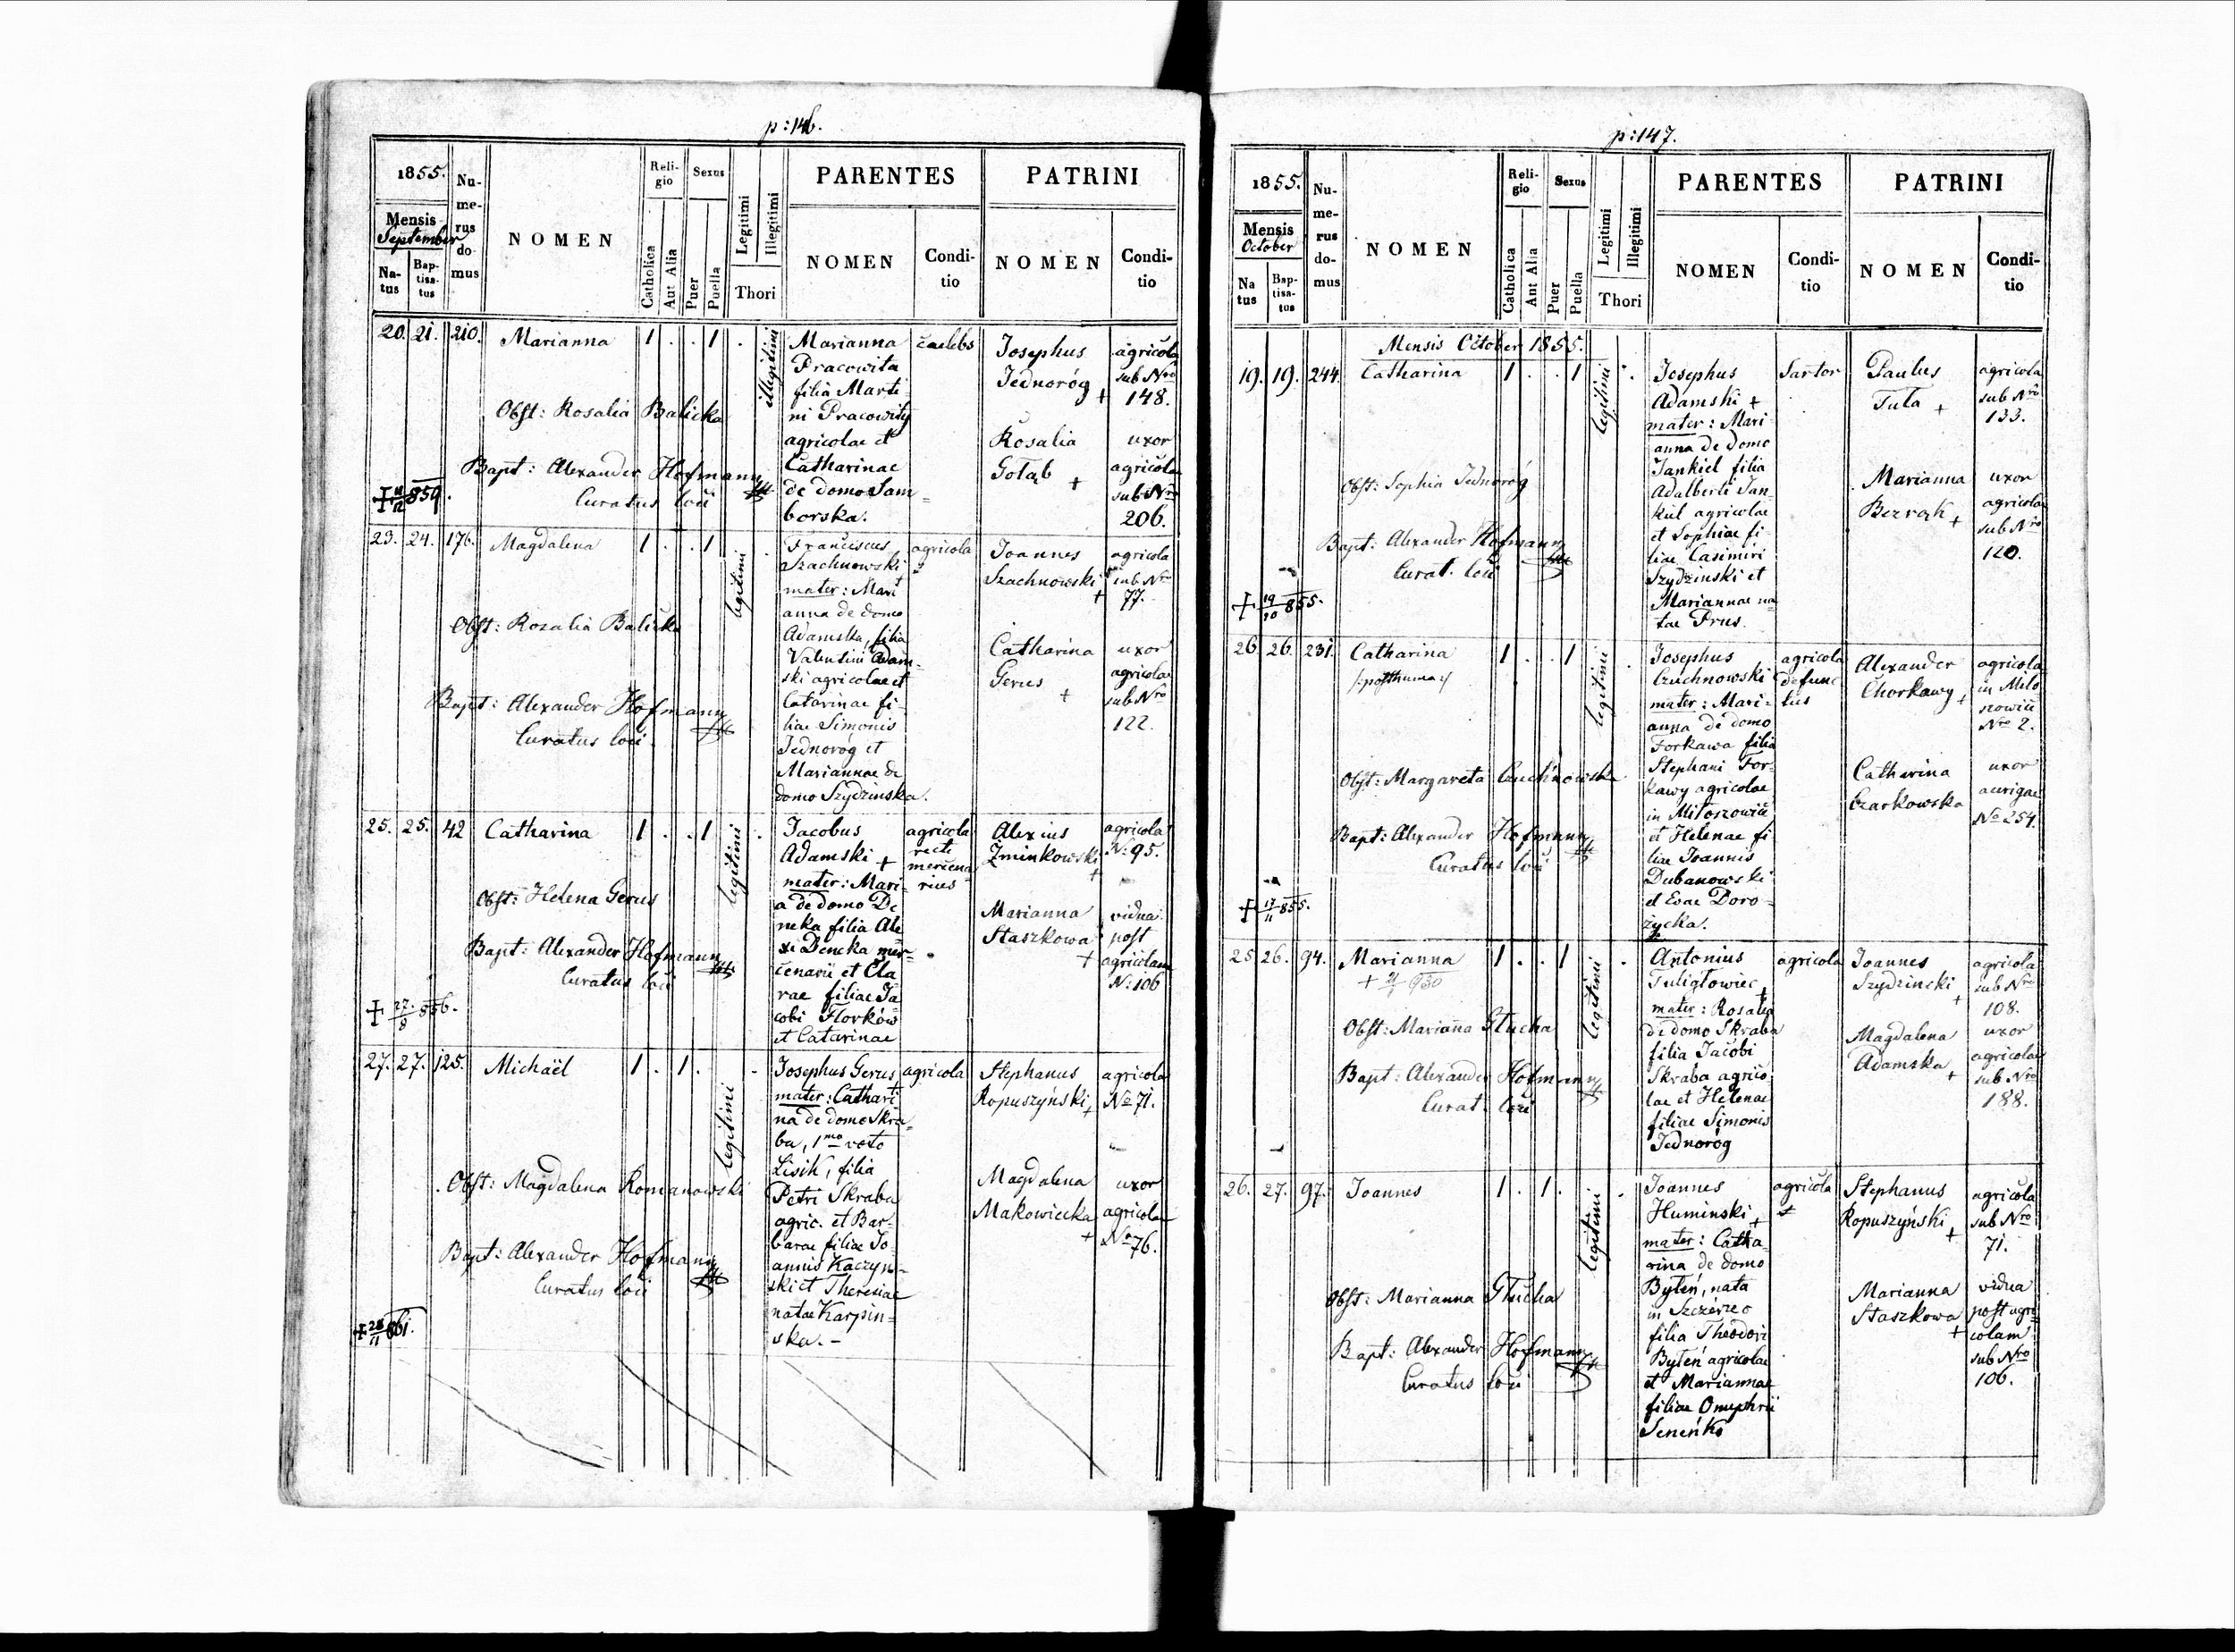 p: 146.
1855.
Mensis
September
Natus
Baptisatus
Numerus domus
NOMEN
Religio
Catholica
Aut Alia
Sexus
Puer
Puella
Legitimi
Illegitimi
Thori
PARENTES
NOMEN
Conditio
PATRINI
NOMEN
Conditio
20. 21. 210. Marianna 1 . . 1 .
illegitimi
Marianna
Pracowita
filia Marti-
ni Pracowity
agricolae et
Catharinae
de domo Sam=
borska.
caelebs
Josephus
Jednoróg +
agricola
sub Nro
148.
Rosalia
Gołąb +
uxor
agricolae
sub Nro
206.
Obst: Rosalia Balicka
Bapt: Alexander Hofmann
Curatus loci
+ 11/12 859.
23. 24. 176. Magdalena 1 . . 1 .
legitimi
Franciscus
Szachnowski
mater: Mari
anna de domo
Adamska, filia
Valentini Adam-
ski agricolae et
Catarinae fi-
liae Simonis
Jednorog et
Mariannae de
domo Szydzinska.
agricola
Joannes
Szachnowski +
agricola
sub Nro
77.
Catharina
Gerus +
uxor
agricolae
sub Nro
122.
Obst: Rozalia Balicka
Bapt: Alexander Hofmann
Curatus loci
25. 25. 42 Catharina 1 . . 1 .
legitimi
Jacobus
Adamski +
mater: Mari-
a de domo De
neka filia Ale
xi Deneka mer=
cenarii et Cla
rae filiae Ja
cobi Florków
et Catarinae
agricola
recte
mercena
rius
Alexius
Zminkowski +
agricola
N: 95.
Marianna
Staszkowa +
vidua
post
agricolam
N: 106
Obst: Helena Gerus
Bapt: Alexander Hofmann
Curatus loci
+ 27/8 856.
27. 27. 125. Michaël 1 . 1 . .
legitimi
Josephus Gerus
mater: Cathari
na de domo Skra=
ba, 1mo voto
Lisik, filia
Petri Skraba
agric. et Bar-
barae filiae Jo
annis Kaczyn-
ski et Theresiae
natae Karpin=
ska. -
agricola
Stephanus
Ropuszyński +
agricola
No 71.
Magdalena
Makowiecka +
uxor
agricolae
No 76.
Obst: Magdalena Romanowski
Bapt: Alexander Hofmann
Curatus loci
+ 28/11 861.
p: 147.
1855.
Mensis
October
Natus
Baptisatus
Numerus domus
NOMEN
Religio
Catholica
Aut Alia
Sexus
Puer
Puella
Legitimi
Illegitimi
Thori
PARENTES
NOMEN
Conditio
PATRINI
NOMEN
Conditio
Mensis October 1855.
19. 19. 244. Catharina 1 . . 1 .
legitimi
Josephus
Adamski +
mater: Mari
anna de domo
Jankiel filia
Adalberti Jan
kiel agricolae
et Sophiae fi-
liae Casimiri
Szydzinski et
Mariannae na
tae Prus.
Sartor
Paulus
Tuta +
agricola
sub Nro
133.
Marianna
Bezrąk +
uxor
agricolae
sub Nro
120.
Obst: Sophia Jednoróg
Bapt: Alexander Hofmann
Curat. loci
+ 19/20 855.
26. 26. 231. Catharina 1 . . 1 .
/:posthuma:/
legitimi
Josephus
Czuchnowski
mater: Mari=
anna de domo
Forkawa filia
Stephani For-
kawy agricolae
in Miłoszowice
et Helenae fi
liae Joannis
Dubanowski
et Evae Doro-
życka.
agricola
defunc
tus
Alexander
Chorkawy +
agricola
in Miło
szowice
Nro 2.
Catharina
Czarkowska
uxor
aurigae
No 254.
Obst: Margareta Czuchnowska
Bapt: Alexander Hofmann
Curatus loci
+ 17/11 855.
25 26. 94. Marianna 1 . . 1 .
legitimi
Antonius
Tuligłowiec +
mater: Rosalia
de domo Skraba
filia Jacobi
Skraba agrico
lae et Helenae
filiae Simonis
Jednoróg
agricola
Joannes
Szydzinski +
agricola
sub Nro
108.
Magdalena
Adamska +
uxor
agricolae
sub Nro
188.
Obst: Marianna Głucha
Bapt: Alexander Hofmann
Curat. loci
26. 27. 97. Joannes 1 . 1 . .
legitimi
Joannes
Huminski +
mater: Catha-
rina de domo
Byteń, nata
in Szczérzec
filia Theodori
Byteń agricolae
et Mariannae
filiae Onuphrii
Seneńko
agricola
Stephanus
Ropuszyński +
agricola
sub Nro
71.
Marianna
Staszkowa +
vidua
post agri=
colam
sub Nro
106.
Obst: Marianna Głucha
Bapt: Alexander Hofmann
Curatus loci